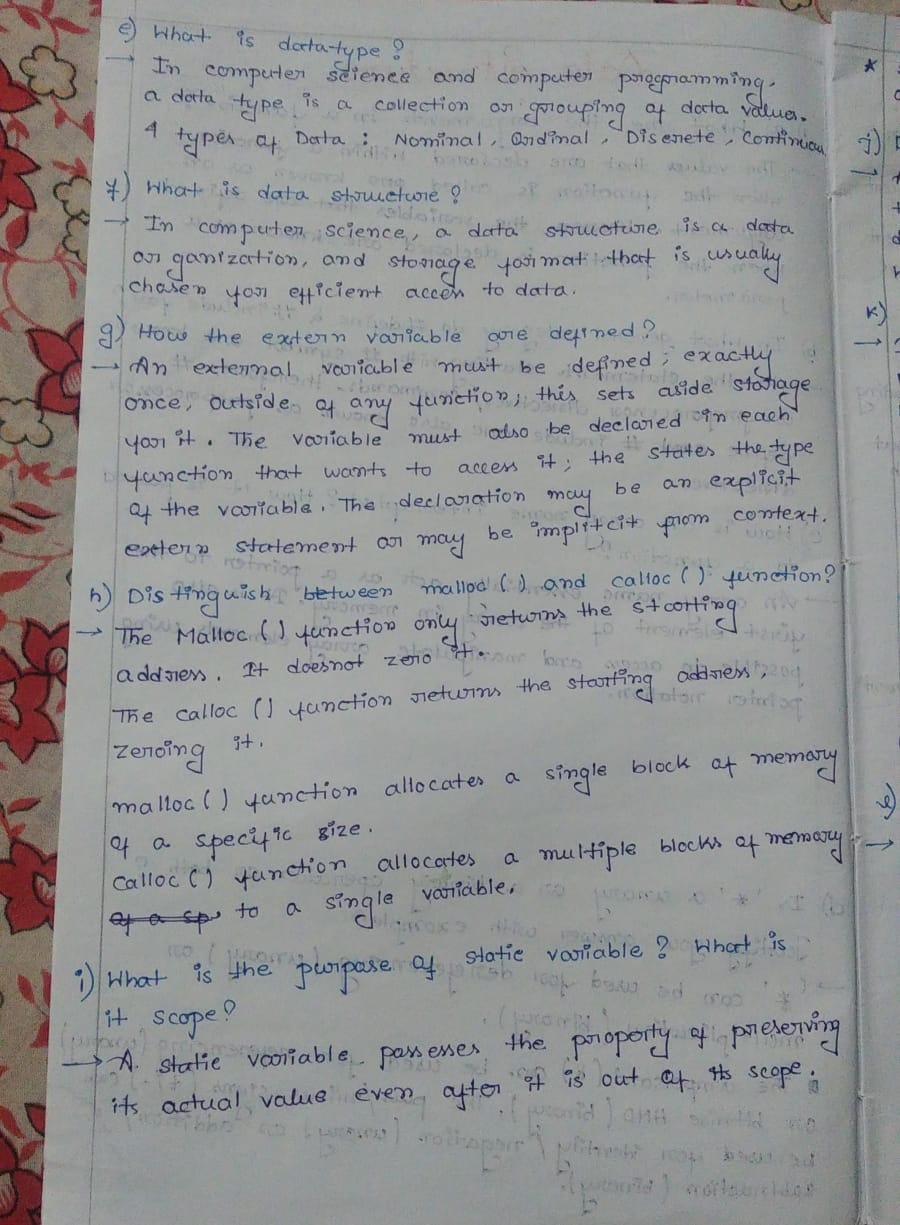 e) What is datatype?
→ In computer science and computer programming.
a data type is a collection or grouping of data values.
4 types of Data : Nominal, Ordinal, Discrete, Continuous
f) What is data structure?
→ In computer science, a data structure is a data
organization, and storage format that is usually
chosen for efficient access to data.
g) How the extern variable are defined?
→ An external variable must be defined; exactly
once, outside of any function; this sets aside storage
for it. The variable must also be declared in each
function that wants to access it; the states the type
of the variable. The declaration may be an explicit
extern statement or may be implitcit from context.
h) Distinguish between malloc() and calloc() function?
→ The Malloc() function only returns the starting
address. It doesnot zero it.
The calloc() function returns the starting address,
zeroing it.
malloc() function allocates a single block of memory
of a specific size.
Calloc() function allocates a multiple blocks of memory
of a sp to a single variable.
i) What is the purpose of static variable? What is
it scope?
→ A static variable possesses the property of preserving
its actual value even after it is out of its scope.
*
j)
→
k)
→
l)
→